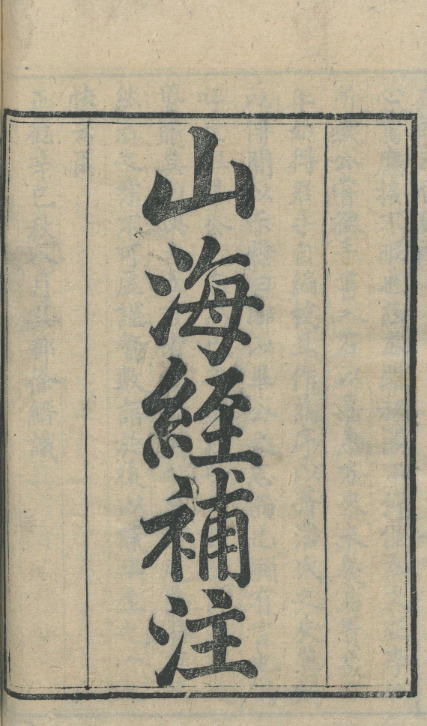 山海経補注